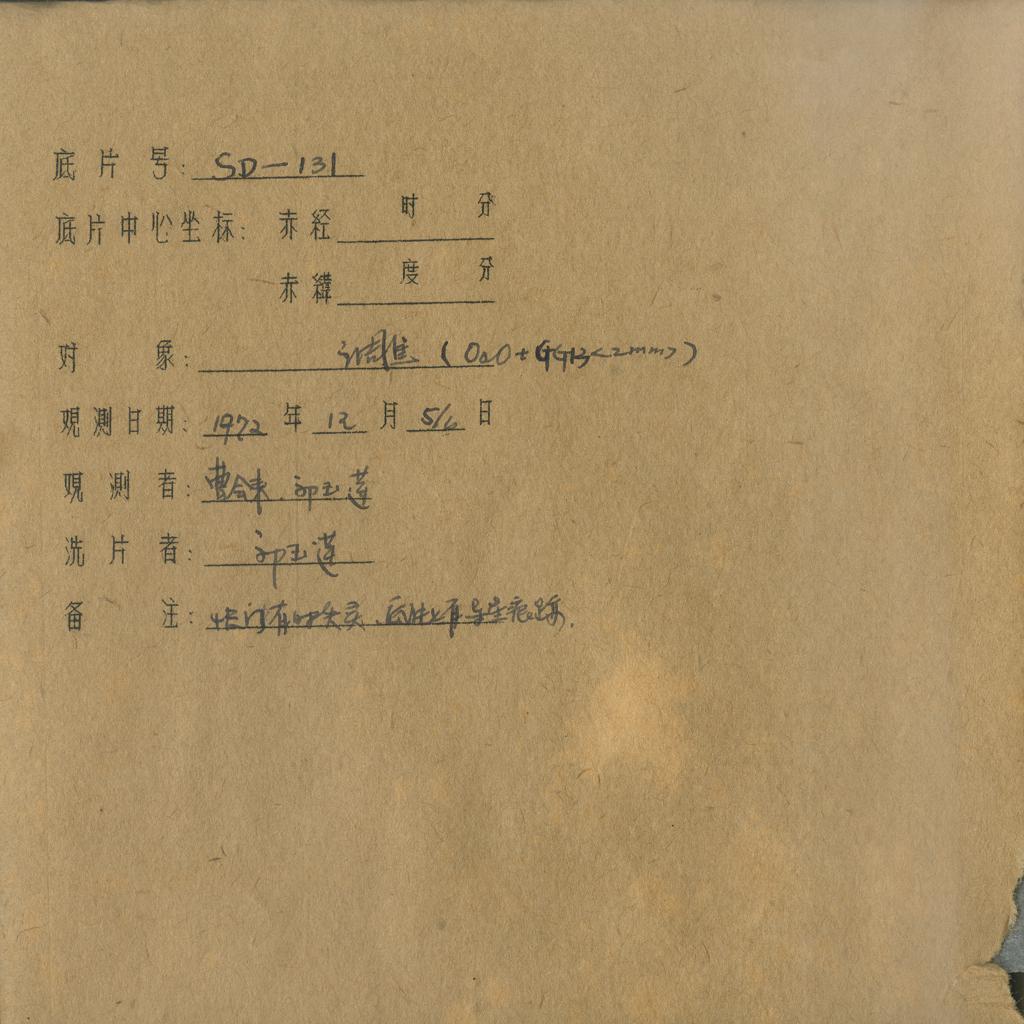 底片号: SD-131
底片中心坐标: 赤经 时 分
赤緯 度 分
对象: 调焦 (OaO+GG13<2mm>)
观测日期: 1972年12月5/6日
观测者: 曹会来、郭玉莲
洗片者: 郭玉莲
备注: 快门有时失灵、底片上有导星痕跡.